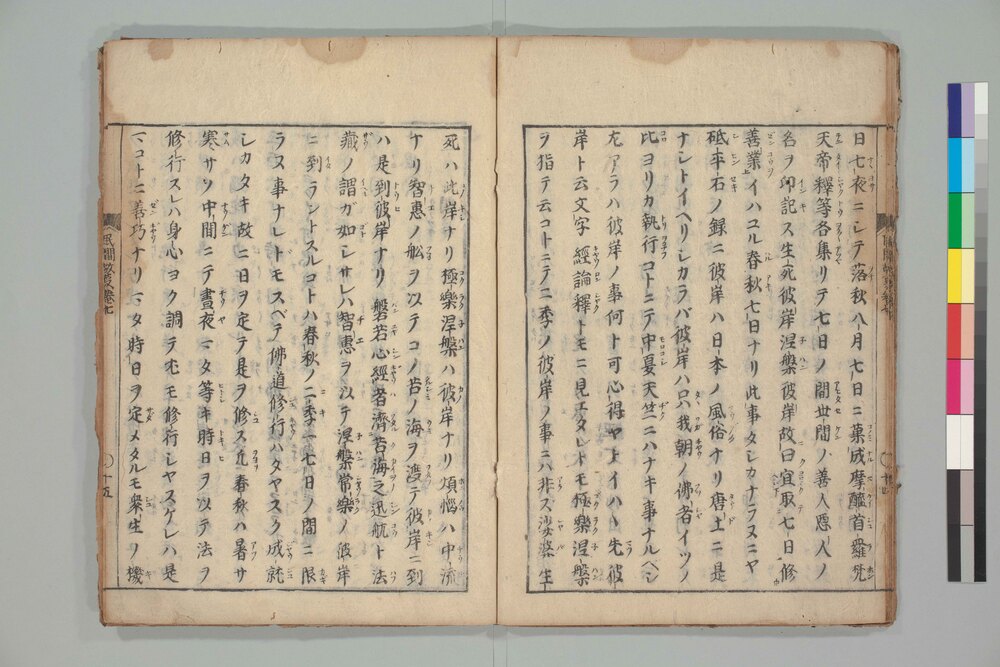 日七夜ニシテ落秋八月七日ニ菓成摩醯首羅梵
天帝釋等各集リテ七日ノ間世間ノ善人惡人ノ
名ヲ印記ス生死彼岸涅槃彼岸故曰宜取七日修
善業イハユル春秋七日ナリ此事タシカナラスニヤ
砥平石ノ録ニ彼岸ハ日本ノ風俗ナリ唐土ニ是
ナシトイヘリシカラバ彼岸ハ只我朝ノ佛者イツノ
比ヨリカ執行コトニテ中夏天竺ニハナキ事ナルヘシ
尤アラハ彼岸ノ事何ト可心得ヤトイハヽ先彼
岸ト云文字經論釋トモニ見エタレトモ極樂涅槃
ヲ指テ云コトニテ二季ノ彼岸ノ事ニハ非ス娑婆生
死ハ此岸ナリ極樂涅槃ハ彼岸ナリ煩惱ハ中流
ナリ智惠ノ舩ヲ以テコノ苦ノ海ヲ渡テ彼岸ニ到
ハ是到彼岸ナリ般若心經者濟苦海之迅航ト法
藏ノ謂ガ如シサレハ智惠ヲ以テ涅槃常樂ノ彼岸
ニ到ラントスルコトハ春秋ノ二季一七日ノ間ニ限
ラス事ナレトモスベテ佛道修行ハタヤスク成就
シカタキ故ニ日ヲ定テ是ヲ修ス尤春秋ハ暑サ
寒サノ中間ニテ晝夜マタ等キ時日ヲ以テ法ヲ
修行スレハ身心ヨク調テ尤モ修行シヤスケレハ是
マコトニ善巧ナリマタ時日ヲ定メタルモ衆生ノ機
十五